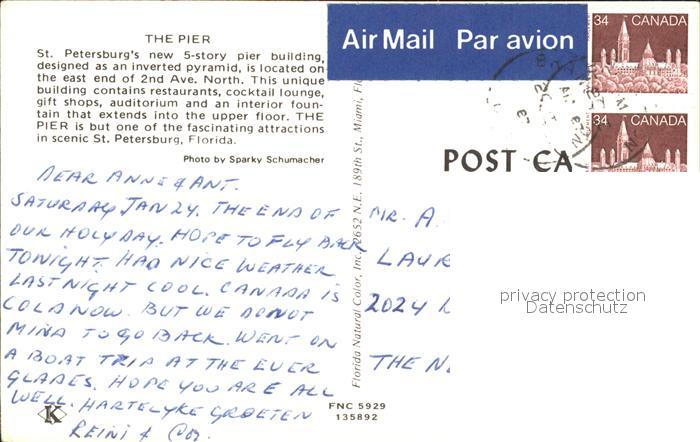 THE PIER
St. Petersburg's new 5-story pier building,
designed as an inverted pyramid, is located on
the east end of 2nd Ave. North. This unique
building contains restaurants, cocktail lounge,
gift shops, auditorium and an interior foun-
tain that extends into the upper floor. THE
PIER is but one of the fascinating attractions
in scenic St. Petersburg, Florida.
Photo by Sparky Schumacher
DEAR ANNE & ANT.
SATURDAY JAN 24. THE END OF
OUR HOLYDAY. HOPE TO FLY BACK
TONIGHT. HAD NICE WEATHER
LAST NIGHT COOL. CANADA IS
COLD NOW. BUT WE DO NOT
MIND TO GO BACK. WENT ON
A BOAT TRIP AT THE EVER
GLADES. HOPE YOU ARE ALL
WELL. HARTELYKE GROETEN
REINI & COR.
K
Florida Natural Color, Inc., 2652 N.E. 189th St., Miami, Fl
FNC 5929
135892
Air Mail Par avion
34 CANADA
34 CANADA
POST CA
MR. A.
LAUR
2024
THE N
privacy protection
Datenschutz